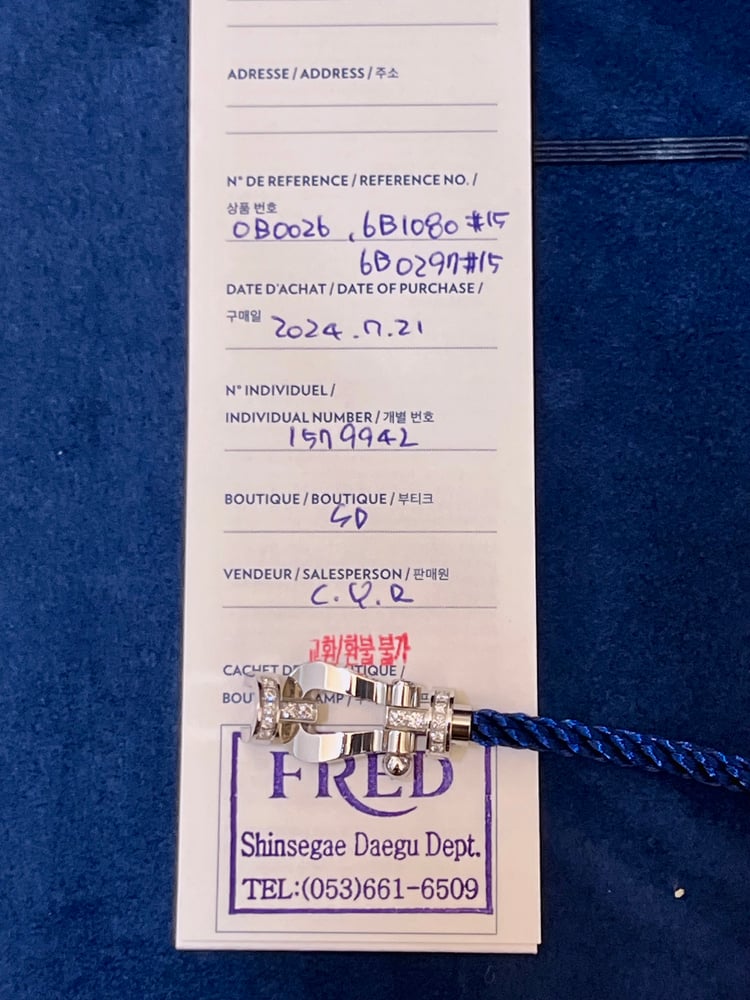 ADRESSE / ADDRESS / 주소
N° DE REFERENCE / REFERENCE NO. /
상품 번호
0B0026 , 6B1080 #15
6B0297#15
DATE D'ACHAT / DATE OF PURCHASE /
구매일 2024.7.21
N° INDIVIDUEL /
INDIVIDUAL NUMBER / 개별 번호
1579942
BOUTIQUE / BOUTIQUE / 부티크
SD
VENDEUR / SALESPERSON / 판매원
C.Y.R
교환/환불 불가
CACHET
FRED
Shinsegae Daegu Dept.
TEL:(053)661-6509